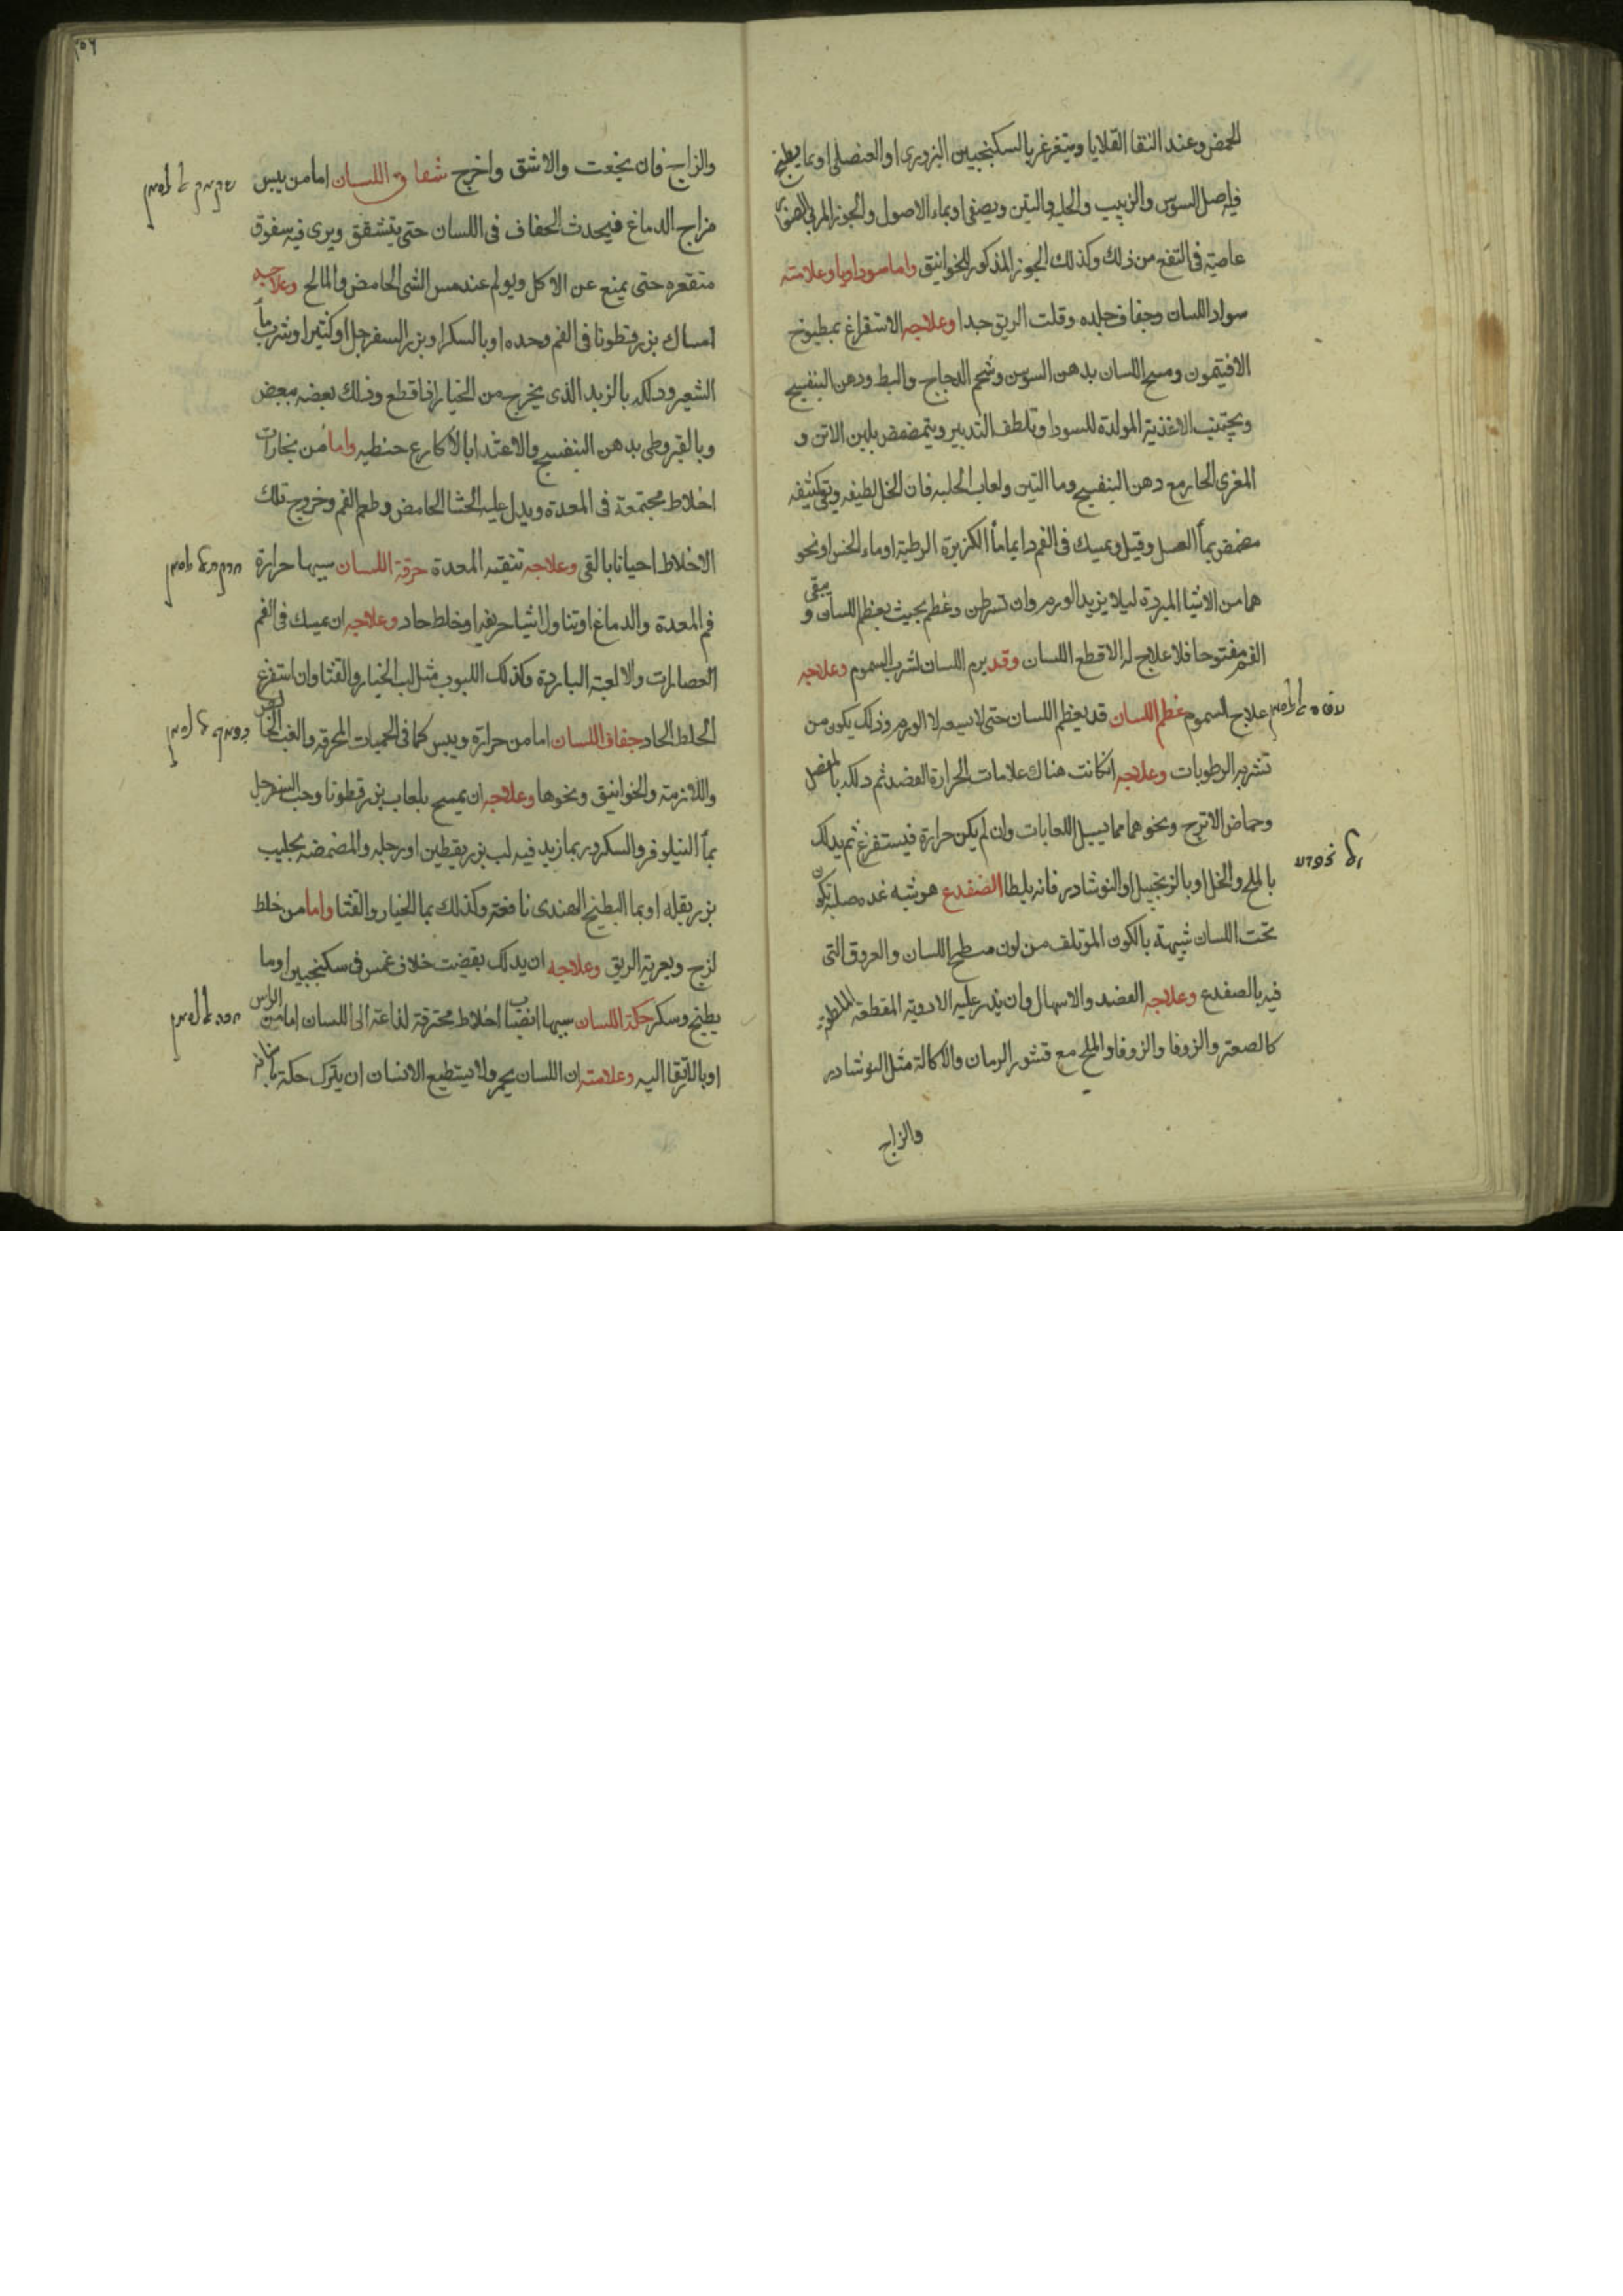 الحمض وعند النقا القلايا ويتغرغر بالسكنجبين البزورى او العنصلى او بما يطبخ
فيه اصل السوس والزبيب والحلبه والتين ويصفى او بماء الاصول والجوز المربى
عاصيته فى النفع من ذلك وكذلك الجوز المذكور للخوانيق واما سوداويا وعلامته
سواد اللسان وجفاف جلده وقلت الريق جدا وعلاجه الاستفراغ بمطبوخ
الافتيمون ومسح اللسان بدهن السوسن وشحم الدجاج والبط ودهن البنفسج
ويجتنب الاغذية المولدة للسودا وتلطف التدبير ويتمضمض بلبن الاتن و
المغرى الحار مع دهن البنفسج وما التين ولعاب الحلبه فان الخل لطيفه
مضمض بمأ العسل وقيل ويمسك فى الفم دايما مأ الكزبرة الرطبة او ماء الخس او نحو
هما من الاشيا المبردة ليلا يزيد الورم وان تسرطن وعظم بحيث يعظم اللسان و يبقى
الفم مفتوحا فلا علاج له الا قطع اللسان وقد يرم اللسان لشرب السموم وعلاجه
علاج السموم عظم اللسان قد يعظم اللسان حتى لا يسعه لا الورم وذلك يكون من
تشربه الرطوبات وعلاجه انكانت هناك علامات الحرارة الفصد ثم دلكه بالمصل
وحماض الاترج ونحوهما مما يسيل اللعابات وان لم يكن حرارة فيستفرغ ثم يدلك
بالملح والخل او بالزنجبيل او النوشادر فانه يلطا الضفدع هو شبه غده صلبة تكون
تحت اللسان شبيهة بالكون المؤتلف من لون سطح اللسان والعروق التى
فيه بالضفدع وعلاجه الفصد والاسهال وان يذر عليه الادوية المقطعة الملطفة
كالصعتر والزوفا والزوفا والملح مع قشور الرمان والاكالة مثل النوشادر
والزاج
والزاج فان نجعت والا شق واخرج شقاق اللسان اما من يبس
مزاج الدماغ فيحدث الجفاف فى اللسان حتى يتشقق ويرى فيه سفوق
متقعره حتى يمنع عن الاكل ويولم عند مس الشى الحامض والمالح وعلاجه
امساك بزر قطونا فى الفم وحده او بالسكر او بزر السفرجل او كثيرا وشرب مأ
الشعير ودلكه بالزبد الذى يخرج من الخيار اذا قطع وذلك بعضه ببعض
وبالقيروطى بدهن البنفسج والاغتذا بالاكارع حنطيه واما من بخارات
اخلاط مجتمعة فى المعدة ويدل عليه الجشا الحامض وطعم الفم وخروج تلك
الاخلاط احيانا بالقى وعلاجه تنقية المعدة حرقة اللسان سببها حرارة
فم المعدة والدماغ او تناول اشيا حريفه او خلط حاد وعلاجه ان يمسك فى الفم
العصارات والالعبة الباردة وكذلك اللبوب مثل لب الخيار والقثا وان استفرغ
الخلط الحاد جفاف اللسان اما من حرارة ويبس كما فى الحميات المحرقه والغب الخالص
واللازمة والخوانيق ونحوها وعلاجه ان يمسح بلعاب بزر قطونا وحب السفرجل
بمأ النيلوفر والسكر وربما زيد فيه لب بزر يقطين او رجله والمضمضه بحليب
بزر بقله او بما البطيخ الهندى نافعة وكذلك بما الخيار والقثا واما من خلط
لزج ويعريه الريق وعلاجه ان يدلك بقضيب خلاف غمس فى سكنجبين او ما
بطيخ وسكر حكة اللسان سببها انصباب اخلاط محترقة لذاعة الى اللسان اما من الراس
او بالارتقا اليه وعلامته ان اللسان يحمر ولا يستطيع الانسان ان يترك حكة باسنانه